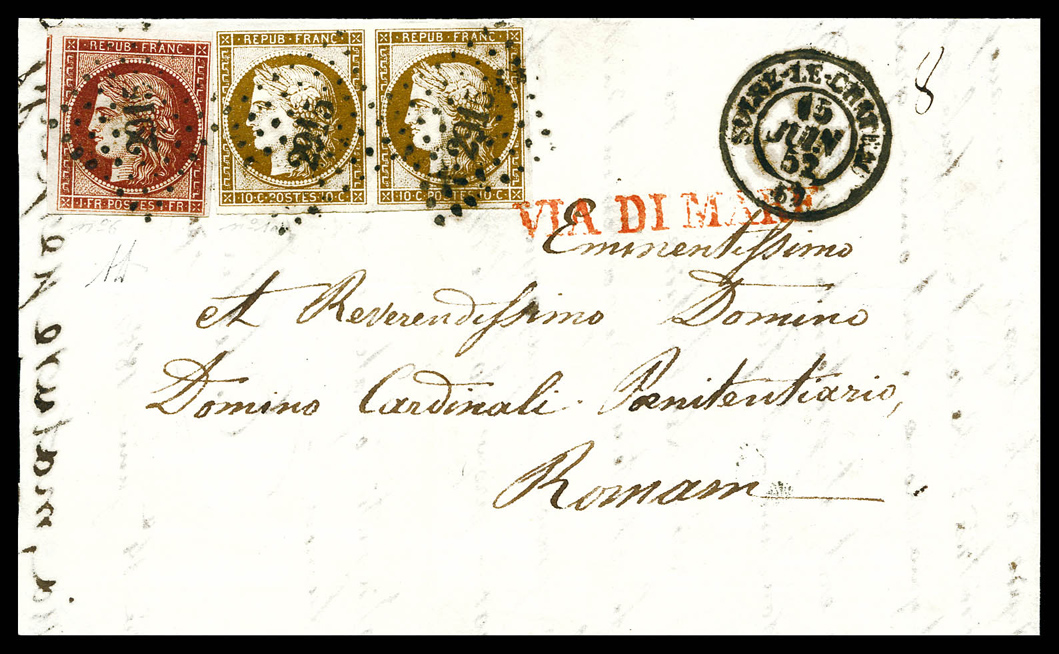 REPUB FRANC
1·FR·POSTES·1·FR
2915
REPUB FRANC
10·C·POSTES·10·C
2915
REPUB FRANC
10·C·POSTES·10·C
2915
15
JUIN
52
8
VIA DI
Eminentissimo
et Reverendissimo Domino
Domino Cardinali Pœnitentiario,
Romam